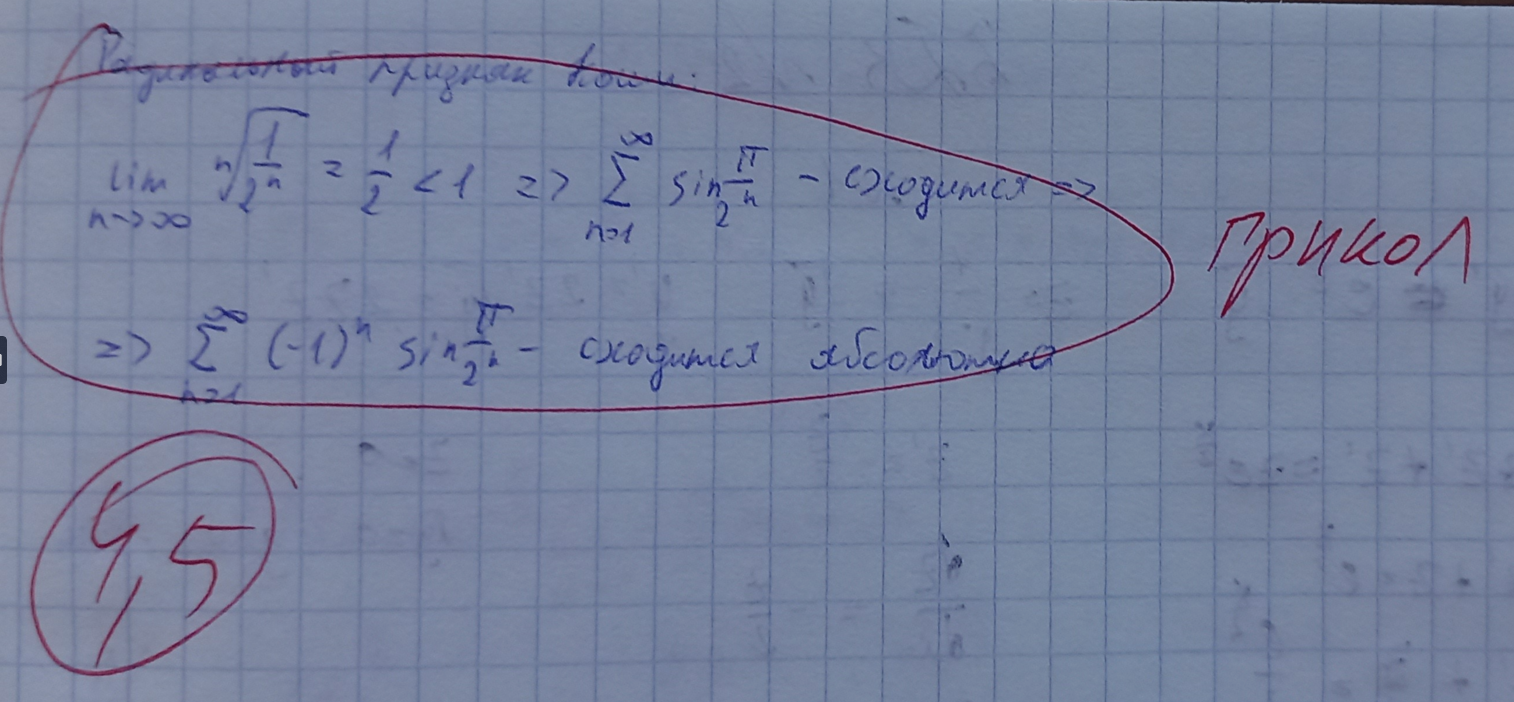 Радикальный признак Коши:
lim n→∞ ⁿ√(1/2ⁿ) = 1/2 < 1 => ∑ n=1 ∞ sin π/2ⁿ - сходится =>
ПРИКОЛ
=> ∑ n=1 ∞ (-1)ⁿ sin π/2ⁿ - сходится абсолютно
4,5